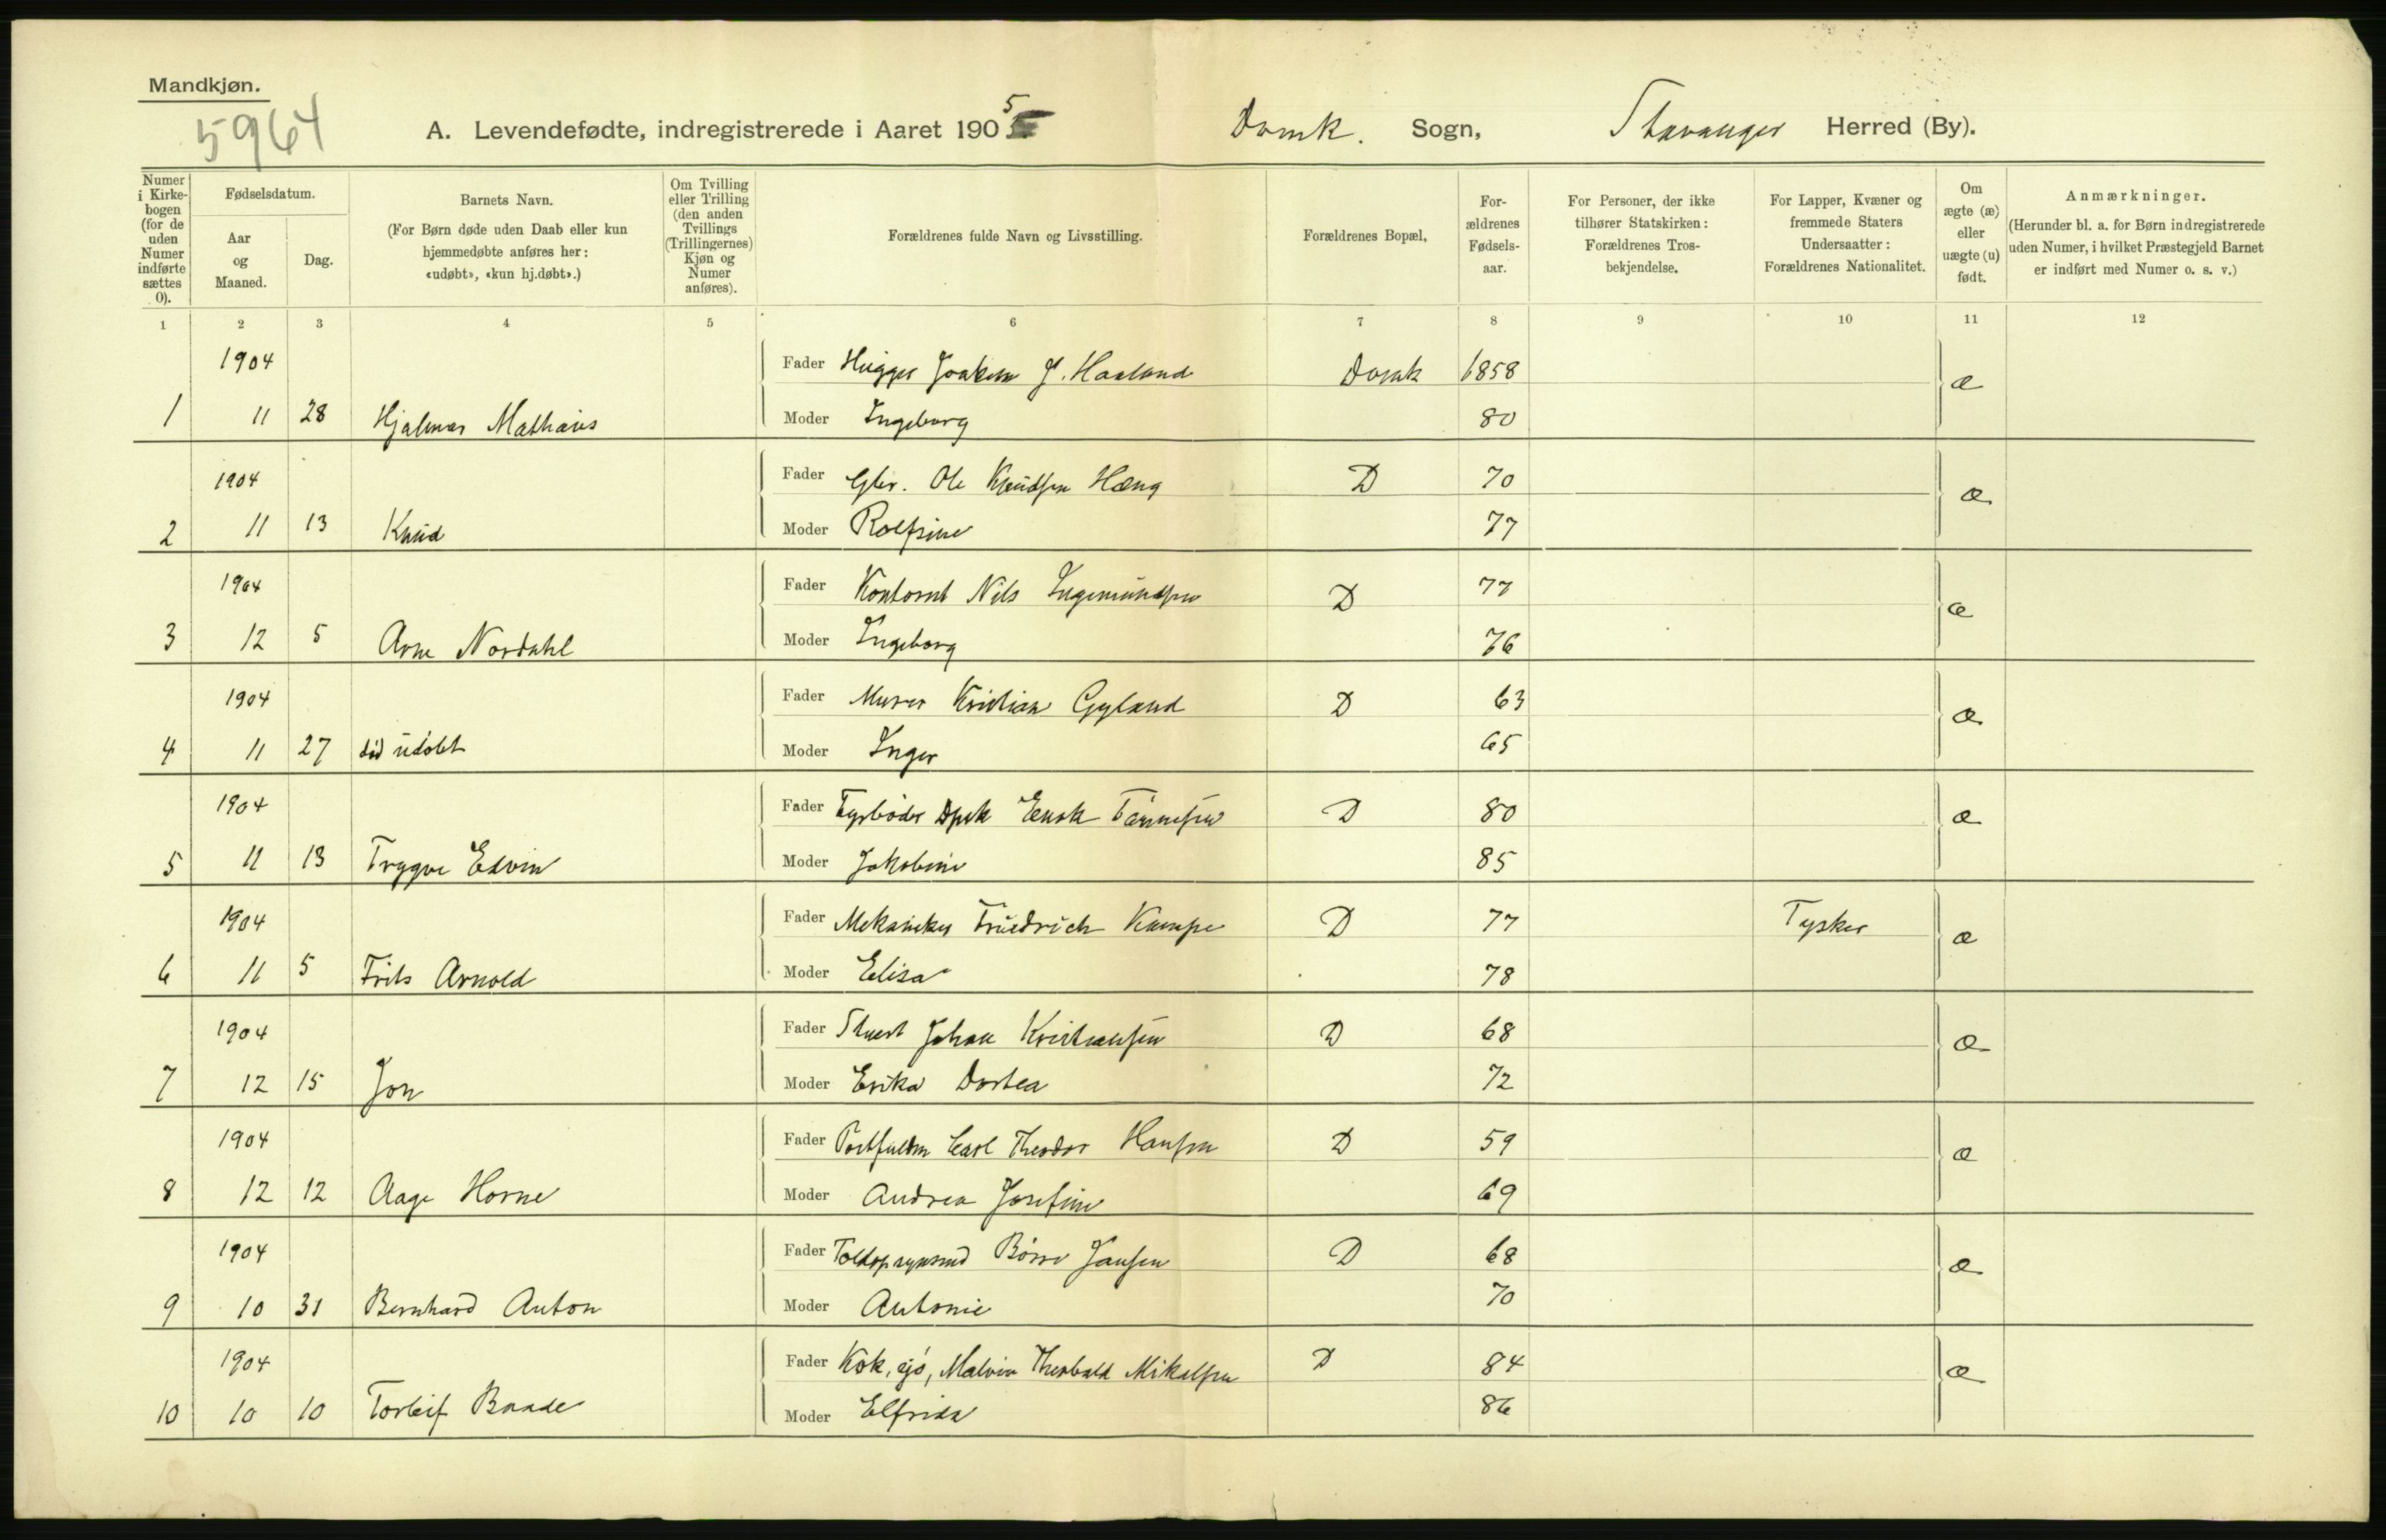 Mandkjøn.
5964
A. Levendefødte, indregistrerede i Aaret 1905 Domk. Sogn, Stavanger Herred (By).
Numer i Kirkebogen (for de uden Numer indførte sættes 0).
Fødselsdatum.
Aar og Maaned.
Dag.
Barnets Navn.
(For Børn døde uden Daab eller kun hjemmedøbte anføres her: «udøbt», «kun hj.døbt».)
Om Tvilling eller Trilling (den anden Tvillings (Trillingernes) Kjøn og Numer anføres).
Forældrenes fulde Navn og Livsstilling.
Forældrenes Bopæl,
Forældrenes Fødselsaar.
For Personer, der ikke tilhører Statskirken: Forældrenes Trosbekjendelse.
For Lapper, Kvæner og fremmede Staters Undersaatter: Forældrenes Nationalitet.
Om ægte (æ) eller uægte (u) født.
Anmærkninger.
(Herunder bl. a. for Børn indregistrerede uden Numer, i hvilket Præstegjeld Barnet er indført med Numer o. s. v.)
1 2 3 4 5 6 7 8 9 10 11 12
1904 Fader Hugger Joakim J. Haaland Domk 1858 æ
1 11 28 Hjalmar Mathæus Moder Ingeborg 80
1904 Fader Ole Knudsen Hæng D 70 æ
2 11 13 Knud Moder Rolfine 77
1904 Fader Kontorist Nils Ingemundsen D 77 æ
3 12 5 Arne Nordahl Moder Ingeborg 76
1904 Fader Murer Kristian Gyland D 63 æ
4 11 27 død udøbt Moder Inger 65
1904 Fader Fyrbøder Enok Tønnesen D 80 æ
5 11 13 Trygve Edvin Moder Jakobine 85
1904 Fader Mekaniker Friedrich Kampe D 77 Tysker æ
6 11 5 Frits Arnold Moder Elisa 78
1904 Fader Stuert Johan Kristiansen D 68 æ
7 12 15 Jon Moder Erika Dortea 72
1904 Fader Postfuldm Carl Theodor Hansen D 59 æ
8 12 12 Aage Horne Moder Andrea Josefine 69
1904 Fader Børre Jansen D 68 æ
9 10 31 Bernhard Anton Moder Antonie 70
1904 Fader Kok, sjø, Malvin Theobald Mikalsen D 84 æ
10 10 10 Torleif Baade Moder Elfrida 86